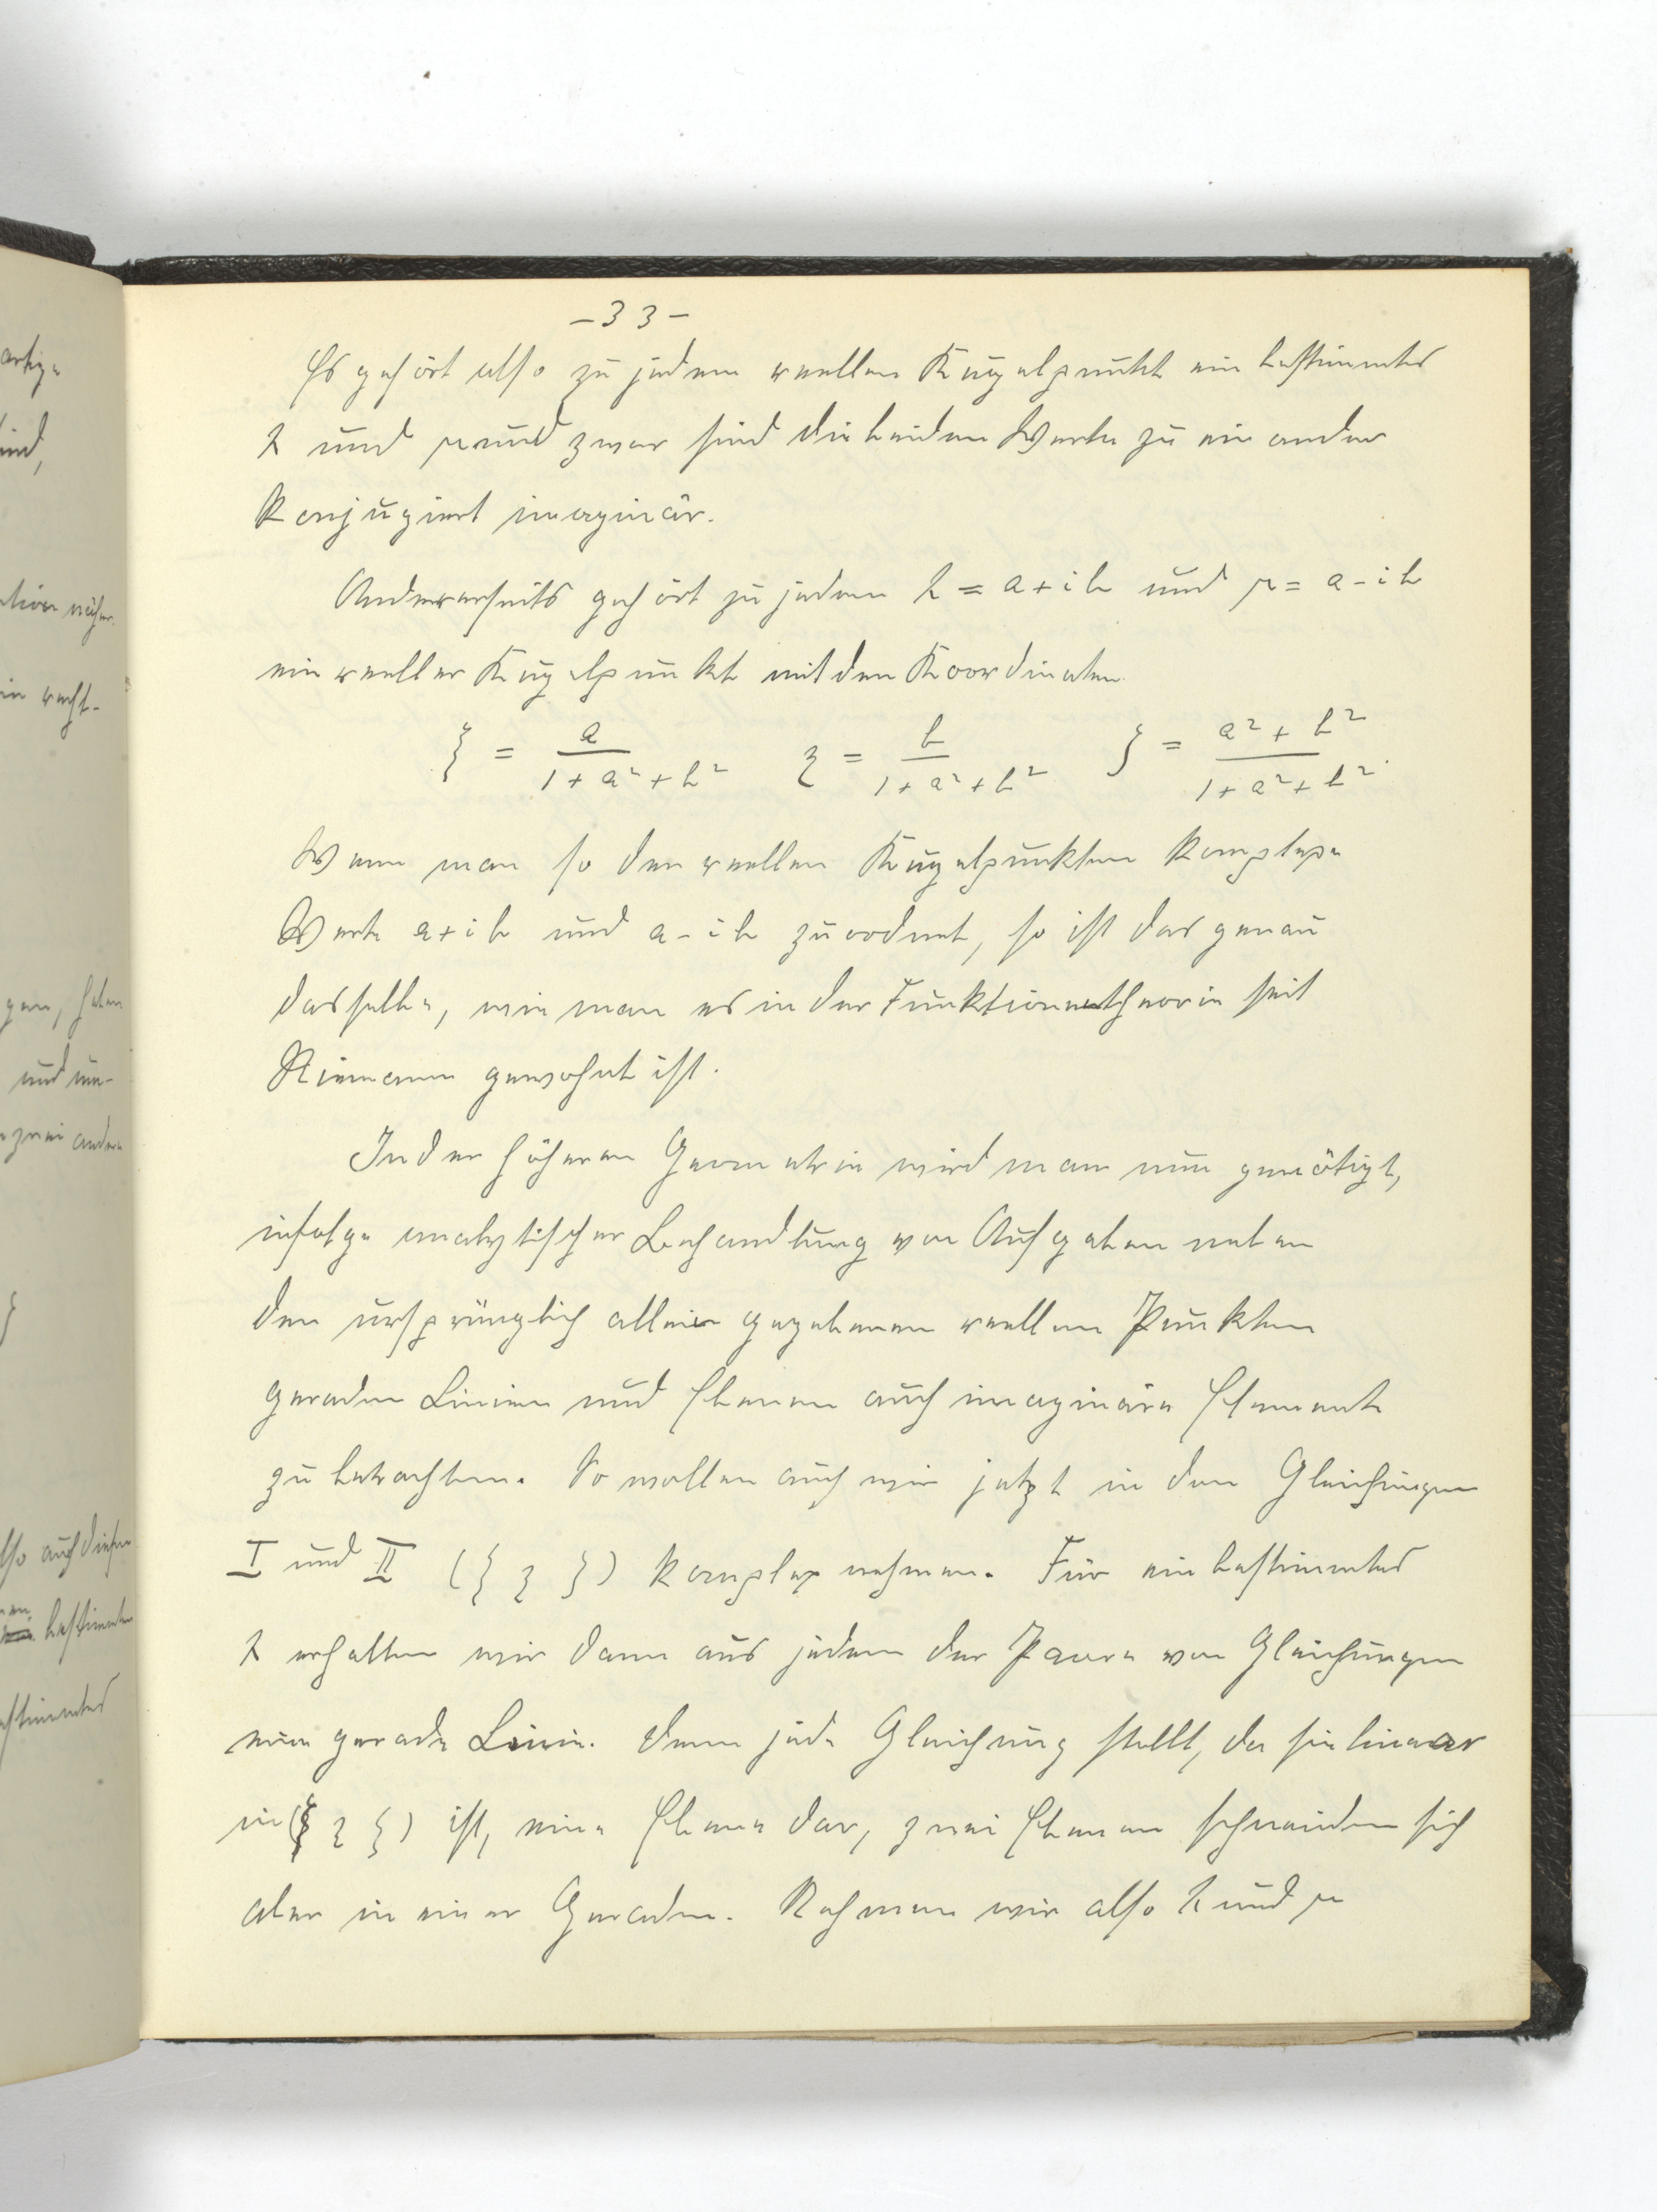 - 33 -
Es gehört also zu jedem reellen Kugelpunkt ein bestimmtes
λ und μ und zwar sind die beiden Werte zu einander
konjugiert imaginär.
Andererseits gehört zu jedem λ = a + ib und μ = a - ib
ein reeller Kugelpunkt mit den Koordinaten
ξ = a / (1 + a² + b²)   η = b / (1 + a² + b²)   ζ = (a² + b²) / (1 + a² + b²).
Wenn man so den reellen Kugelpunkten komplexe
Werte a + ib und a - ib zuordnet, so ist das genau
dasselbe, wie man es in der Funktionentheorie seit
Riemann gewohnt ist.
In der höheren Geometrie wird man nun genötigt,
infolge analytischer Behandlung von Aufgaben neben
den ursprünglich allein gegebenen reellen Punkten
geraden Linien und Ebenen auch imaginäre Elemente
zu betrachten. So wollen auch wir jetzt in den Gleichungen
I und II (ξ η ζ) komplex nehmen. Für ein bestimmtes
λ erhalten wir dann aus jedem der Paare von Gleichungen
eine gerade Linie. Denn jede Gleichung stellt, da sie linear
in (ξ η ζ) ist, eine Ebene dar, zwei Ebenen schneiden sich
aber in einer Geraden. Nehmen wir also λ und μ
artige
sind,
ation näher
ein recht-
gen, haben
und un-
zwei andere
also auch diesem
bestimmten
bestimmtes